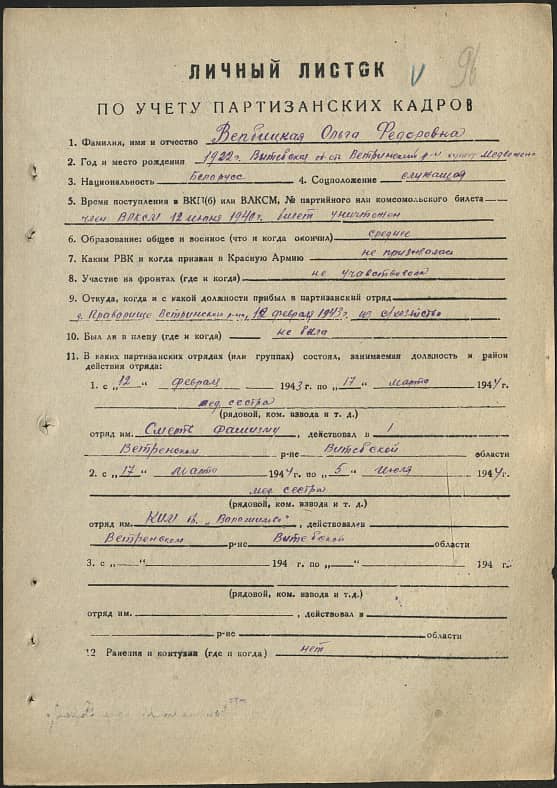 ЛИЧНЫЙ ЛИСТОК
V 96
ПО УЧЕТУ ПАРТИЗАНСКИХ КАДРОВ
1. Фамилия, имя и отчество Вербицкая Ольга Федоровна
2. Год и место рождения 1922 г. Витебская об-сть Ветринский р-н
3. Национальность Белорусс 4. Соцположение служащая
5. Время поступления в ВКП(б) или ВЛКСМ, № партийного или комсомольского билета
член ВЛКСМ 12 июня 1940 г. билет уничтожен
6. Образование: общее и военное (что и когда окончил) среднее
7. Каким РВК и когда призван в Красную Армию не призывалась
8. Участие на фронтах (где и когда) не учавствовала
9. Откуда, когда и с какой должности прибыл в партизанский отряд
д. Ветринского р-на, 12 февраля 1943 г. из с/хозяйства
10. Был ли в плену (где и когда) не была
11. В каких партизанских отрядах (или группах) состоял, занимаемая должность и район
действия отряда:
1. с „12“ февраля 1943 г. по „17“ марта 1944 г.
мед. сестра
(рядовой, ком. взвода и т. д.)
отряд им. Смерть фашизму, действовал в 1
Ветренском р-не Витебской области
2. с „17“ марта 1944 г. по „5“ июля 1944 г.
мед сестра
(рядовой, ком. взвода и т. д.)
отряд им. КИМ бр. „Ворошилова“, действовал в
Ветренском р-не Витебской области
3. с „ “ 194 г. по „ “ 194 г.
(рядовой, ком. взвода и т.д.)
отряд им. , действовал в
р-не области
12 Ранения и контузии (где и когда) нет